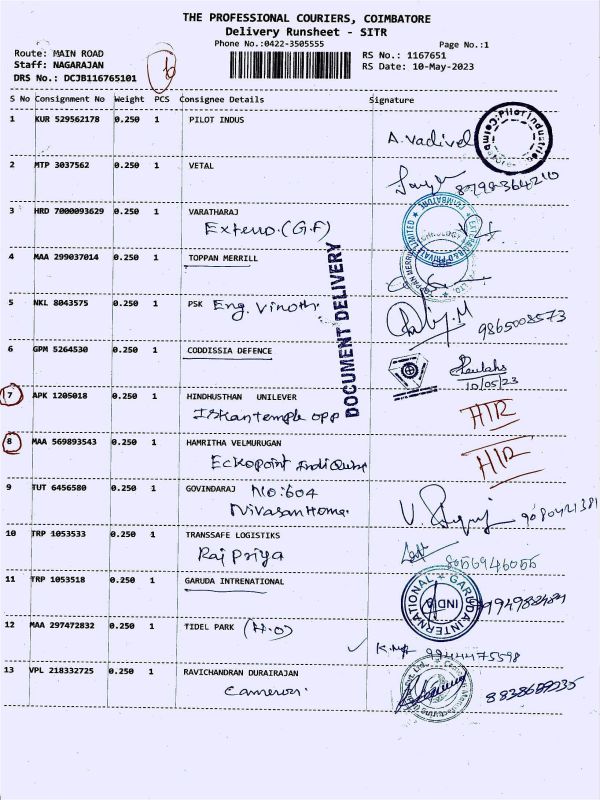 THE PROFESSIONAL COURIERS, COIMBATORE
Delivery Runsheet - SITR
Phone No.:0422-3505555 Page No.:1
Route: MAIN ROAD RS No.: 1167651
Staff: NAGARAJAN RS Date: 10-May-2023
DRS No.: DCJB116765101
S No Consignment No Weight PCS Consignee Details Signature
1 KUR 529562178 0.250 1 PILOT INDUS
A. Vadivel
2 MTP 3037562 0.250 1 VETAL
8798364210
3 HRD 7000093629 0.250 1 VARATHARAJ
Exterro. (G.F)
4 MAA 299037014 0.250 1 TOPPAN MERRILL
DOCUMENT DELIVERY
5 NKL 8043575 0.250 1 PSK Eng. Vinoth
9865008573
6 GPM 5264530 0.250 1 CODDISSIA DEFENCE
10/05/23
7 APK 1205018 0.250 1 HINDHUSTHAN UNILEVER
Iskan temple opp
8 MAA 569893543 0.250 1 HAMRITHA VELMURUGAN
Eckopoint
9 TUT 6456580 0.250 1 GOVINDARAJ No: 604
Nivasan Home.
10 TRP 1053533 0.250 1 TRANSSAFE LOGISTIKS
Raj Priya 8056946055
11 TRP 1053518 0.250 1 GARUDA INTRENATIONAL
GARUDA INTERNATIONAL
INDIA
12 MAA 297472832 0.250 1 TIDEL PARK (H.O)
9944475598
13 VPL 218332725 0.250 1 RAVICHANDRAN DURAIRAJAN
Cameron.